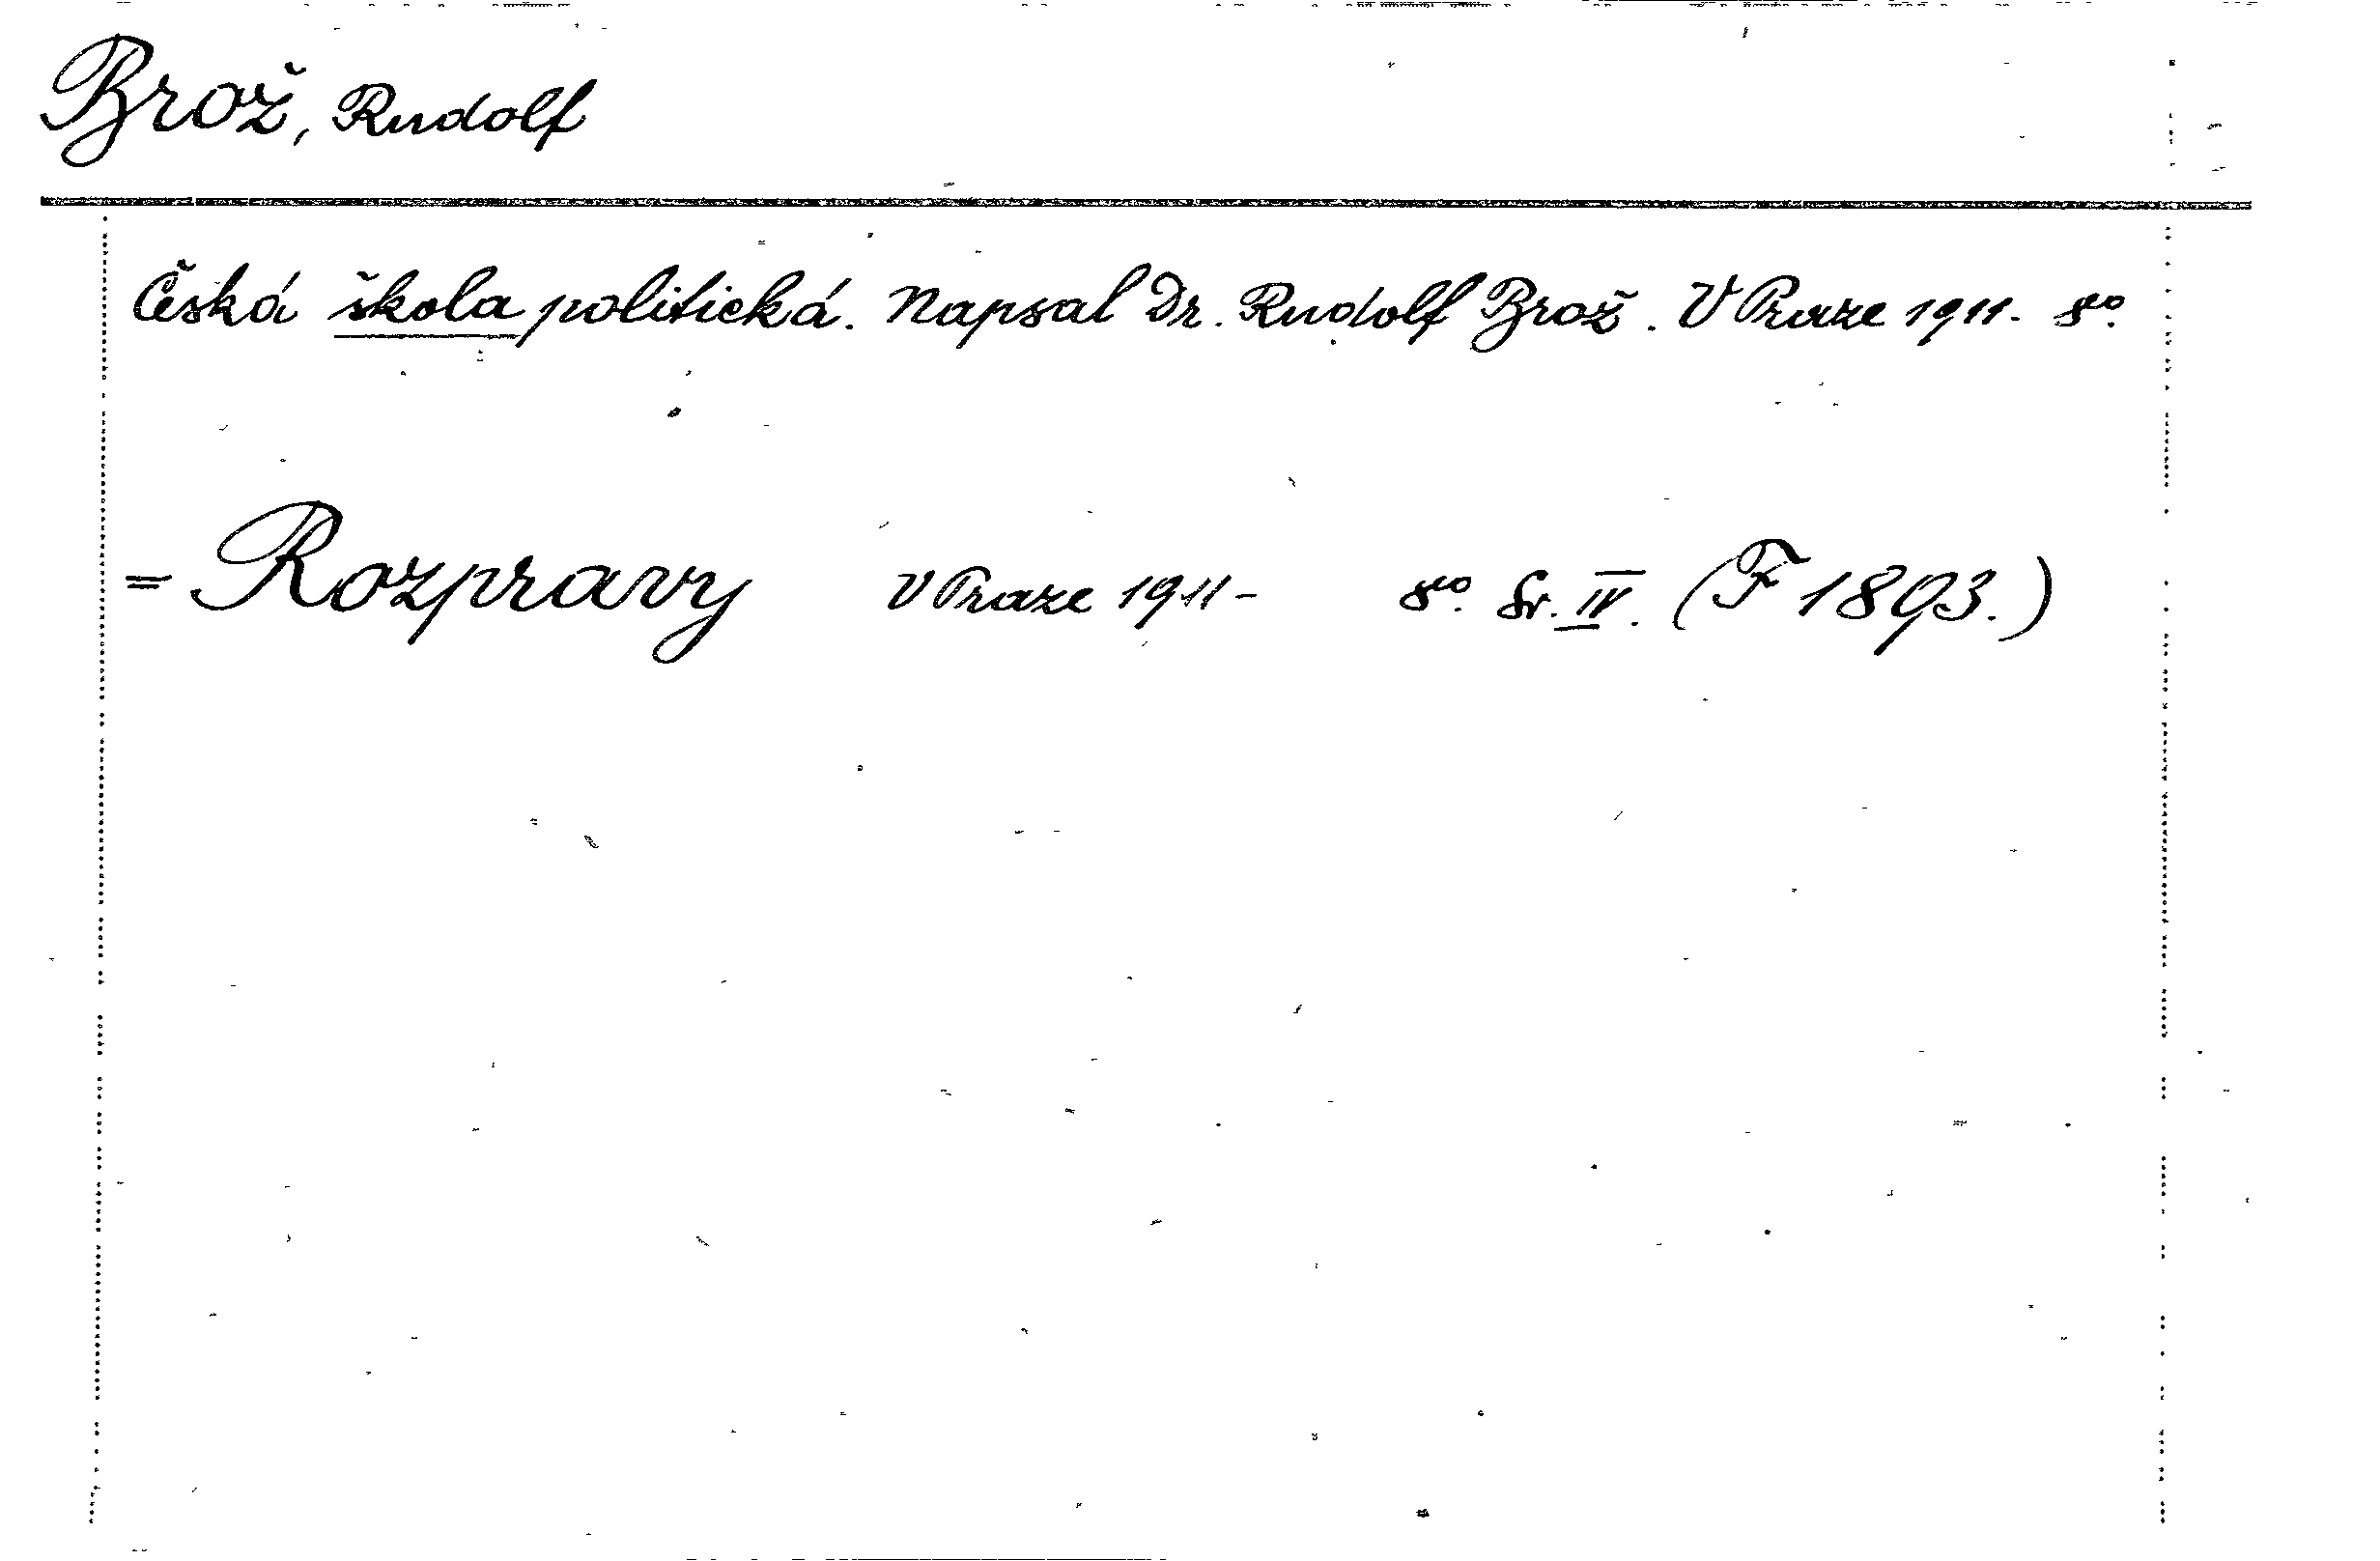 Brož, Rudolf
Česká škola politická. Napsal Dr. Rudolf Brož. V Praze 1911. 8o.
= Rozpravy V Praze 1911- 8o. Sv. IV. (F 1893.)